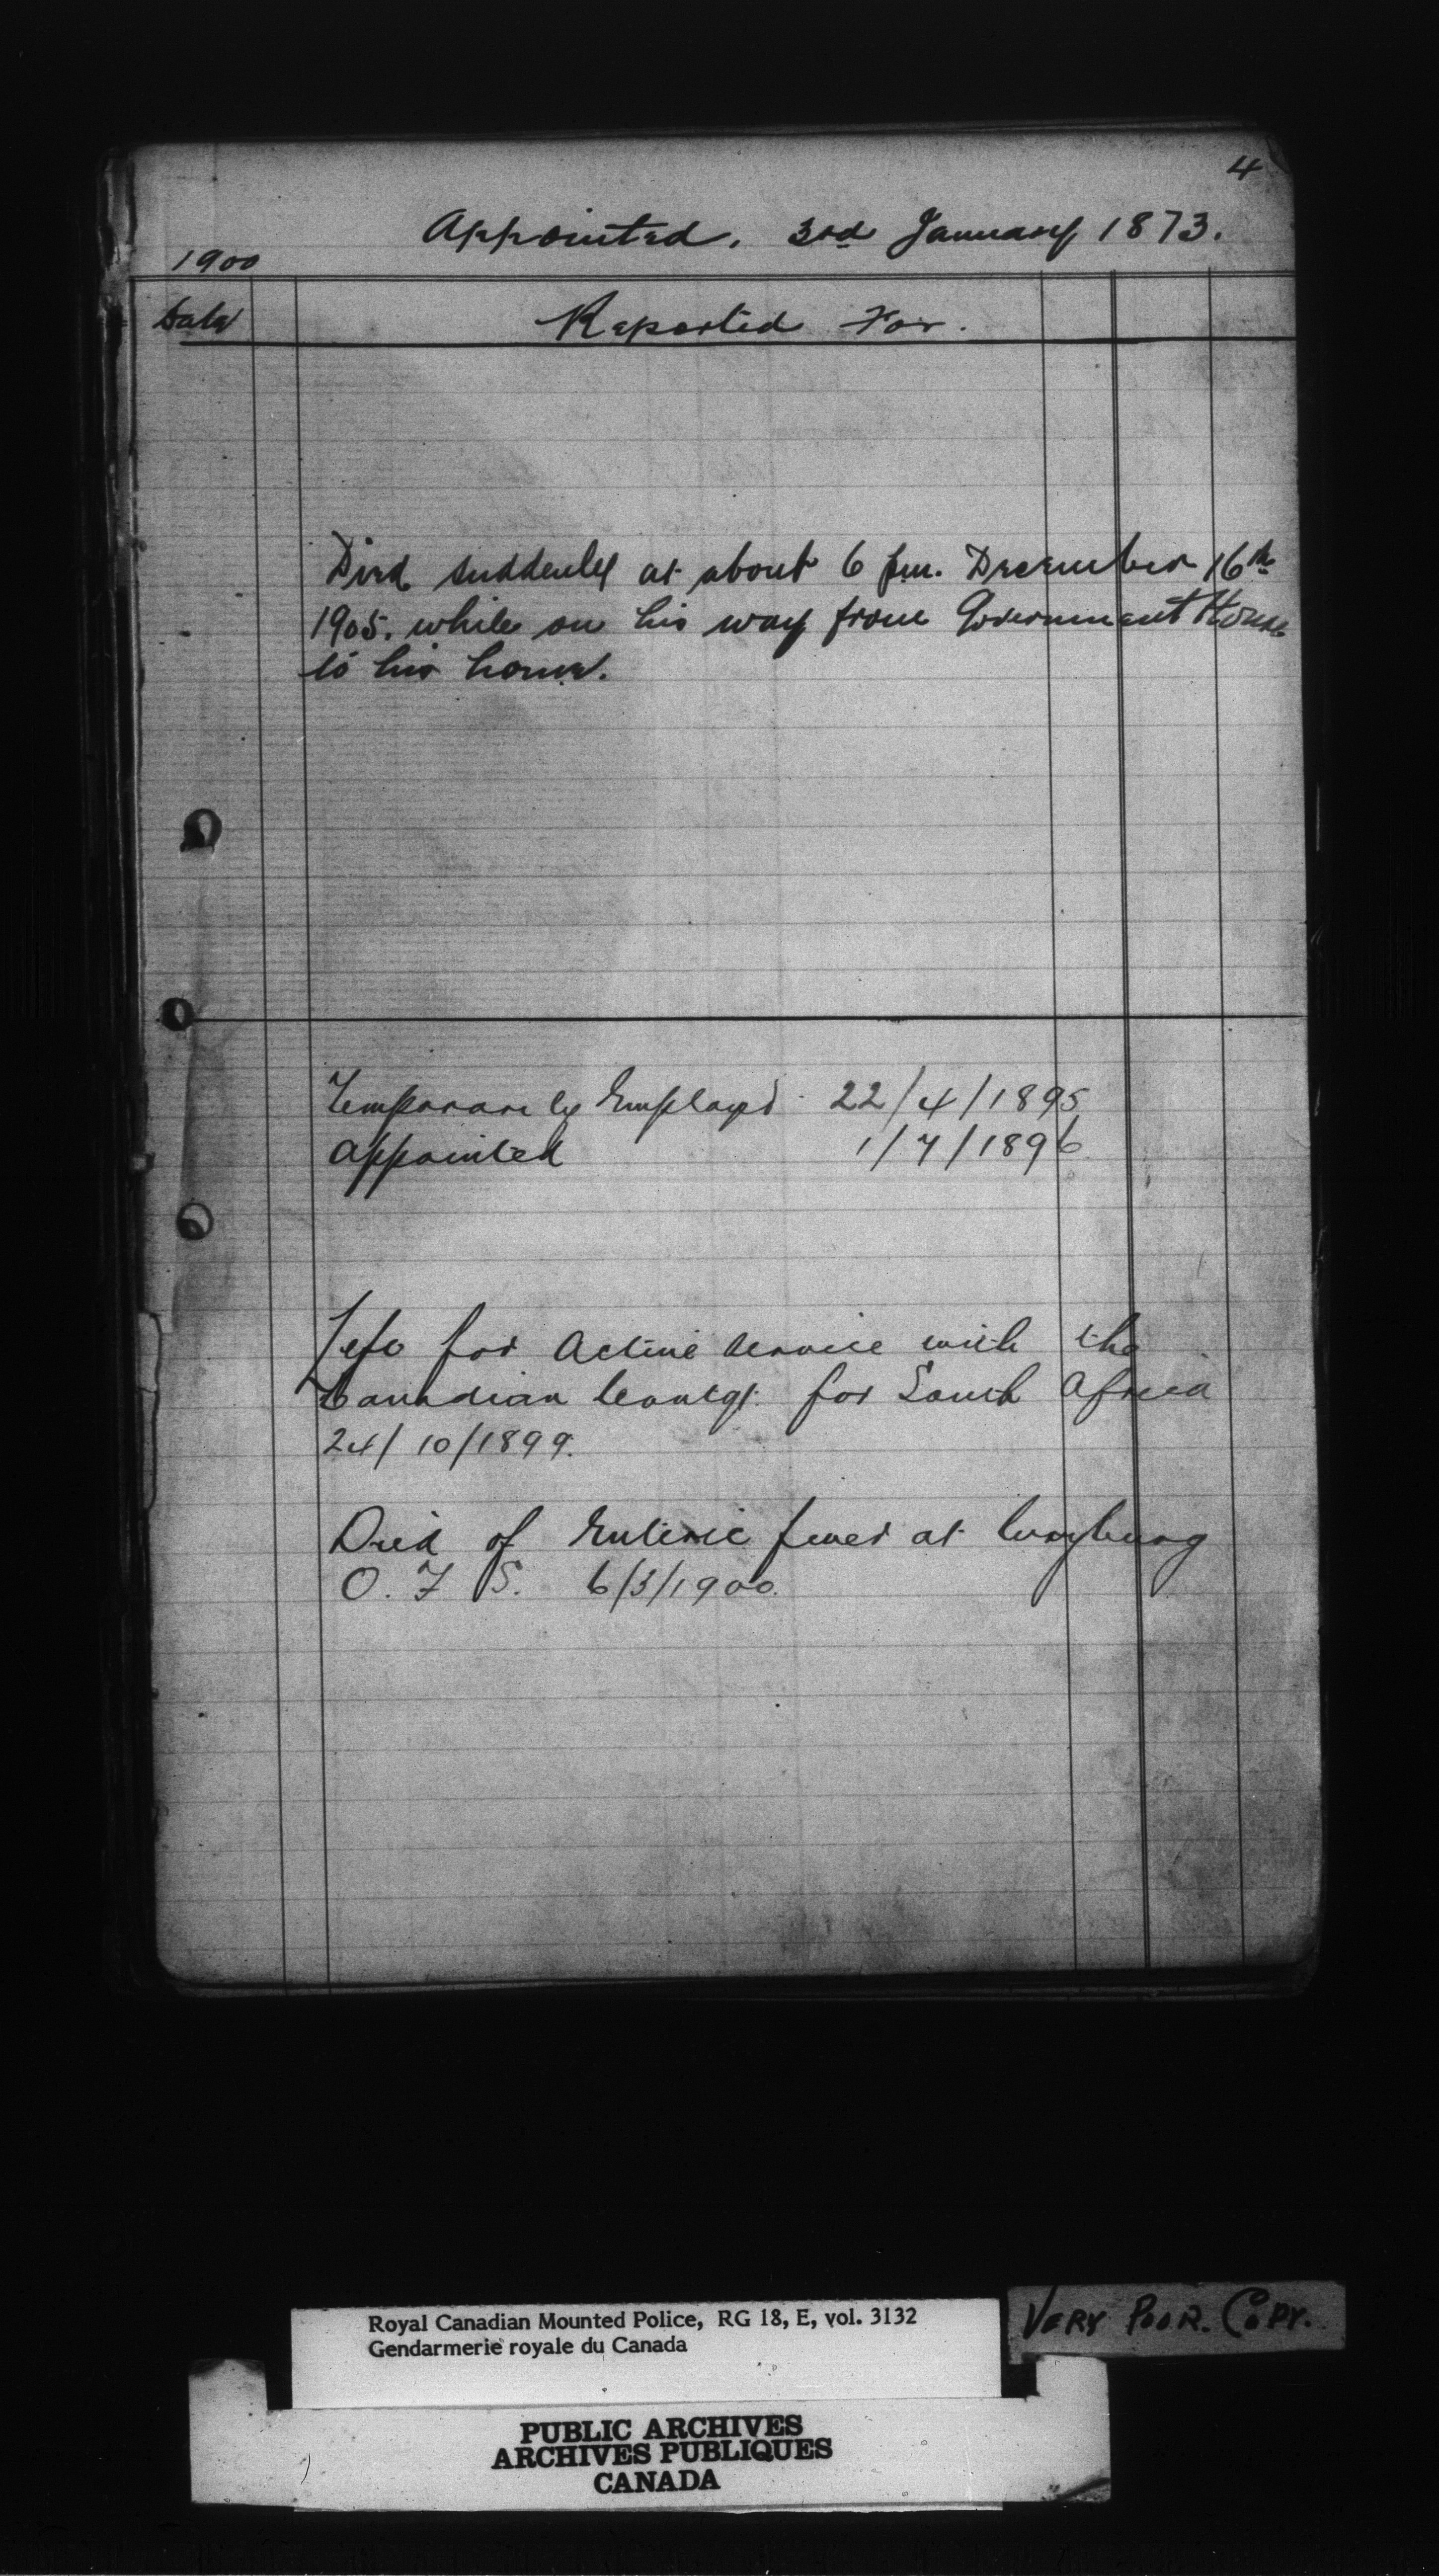 4
Appointed. 3rd January 1873.
1900
Date
Reported For.
Died suddenly at about 6 p.m. December 16th
1905. while on his way from Government House
to his home.
Temporarily Employed 22/4/1895
Appointed 1/7/1896
Left for Active Service with the
Canadian Contgt. for South Africa
24/10/1899.
Died of Enteric fever at
O. F. S. 6/3/1900.
Royal Canadian Mounted Police, RG 18, E, vol. 3132
Gendarmerie royale du Canada
VERY POOR. COPY.
PUBLIC ARCHIVES
ARCHIVES PUBLIQUES
CANADA